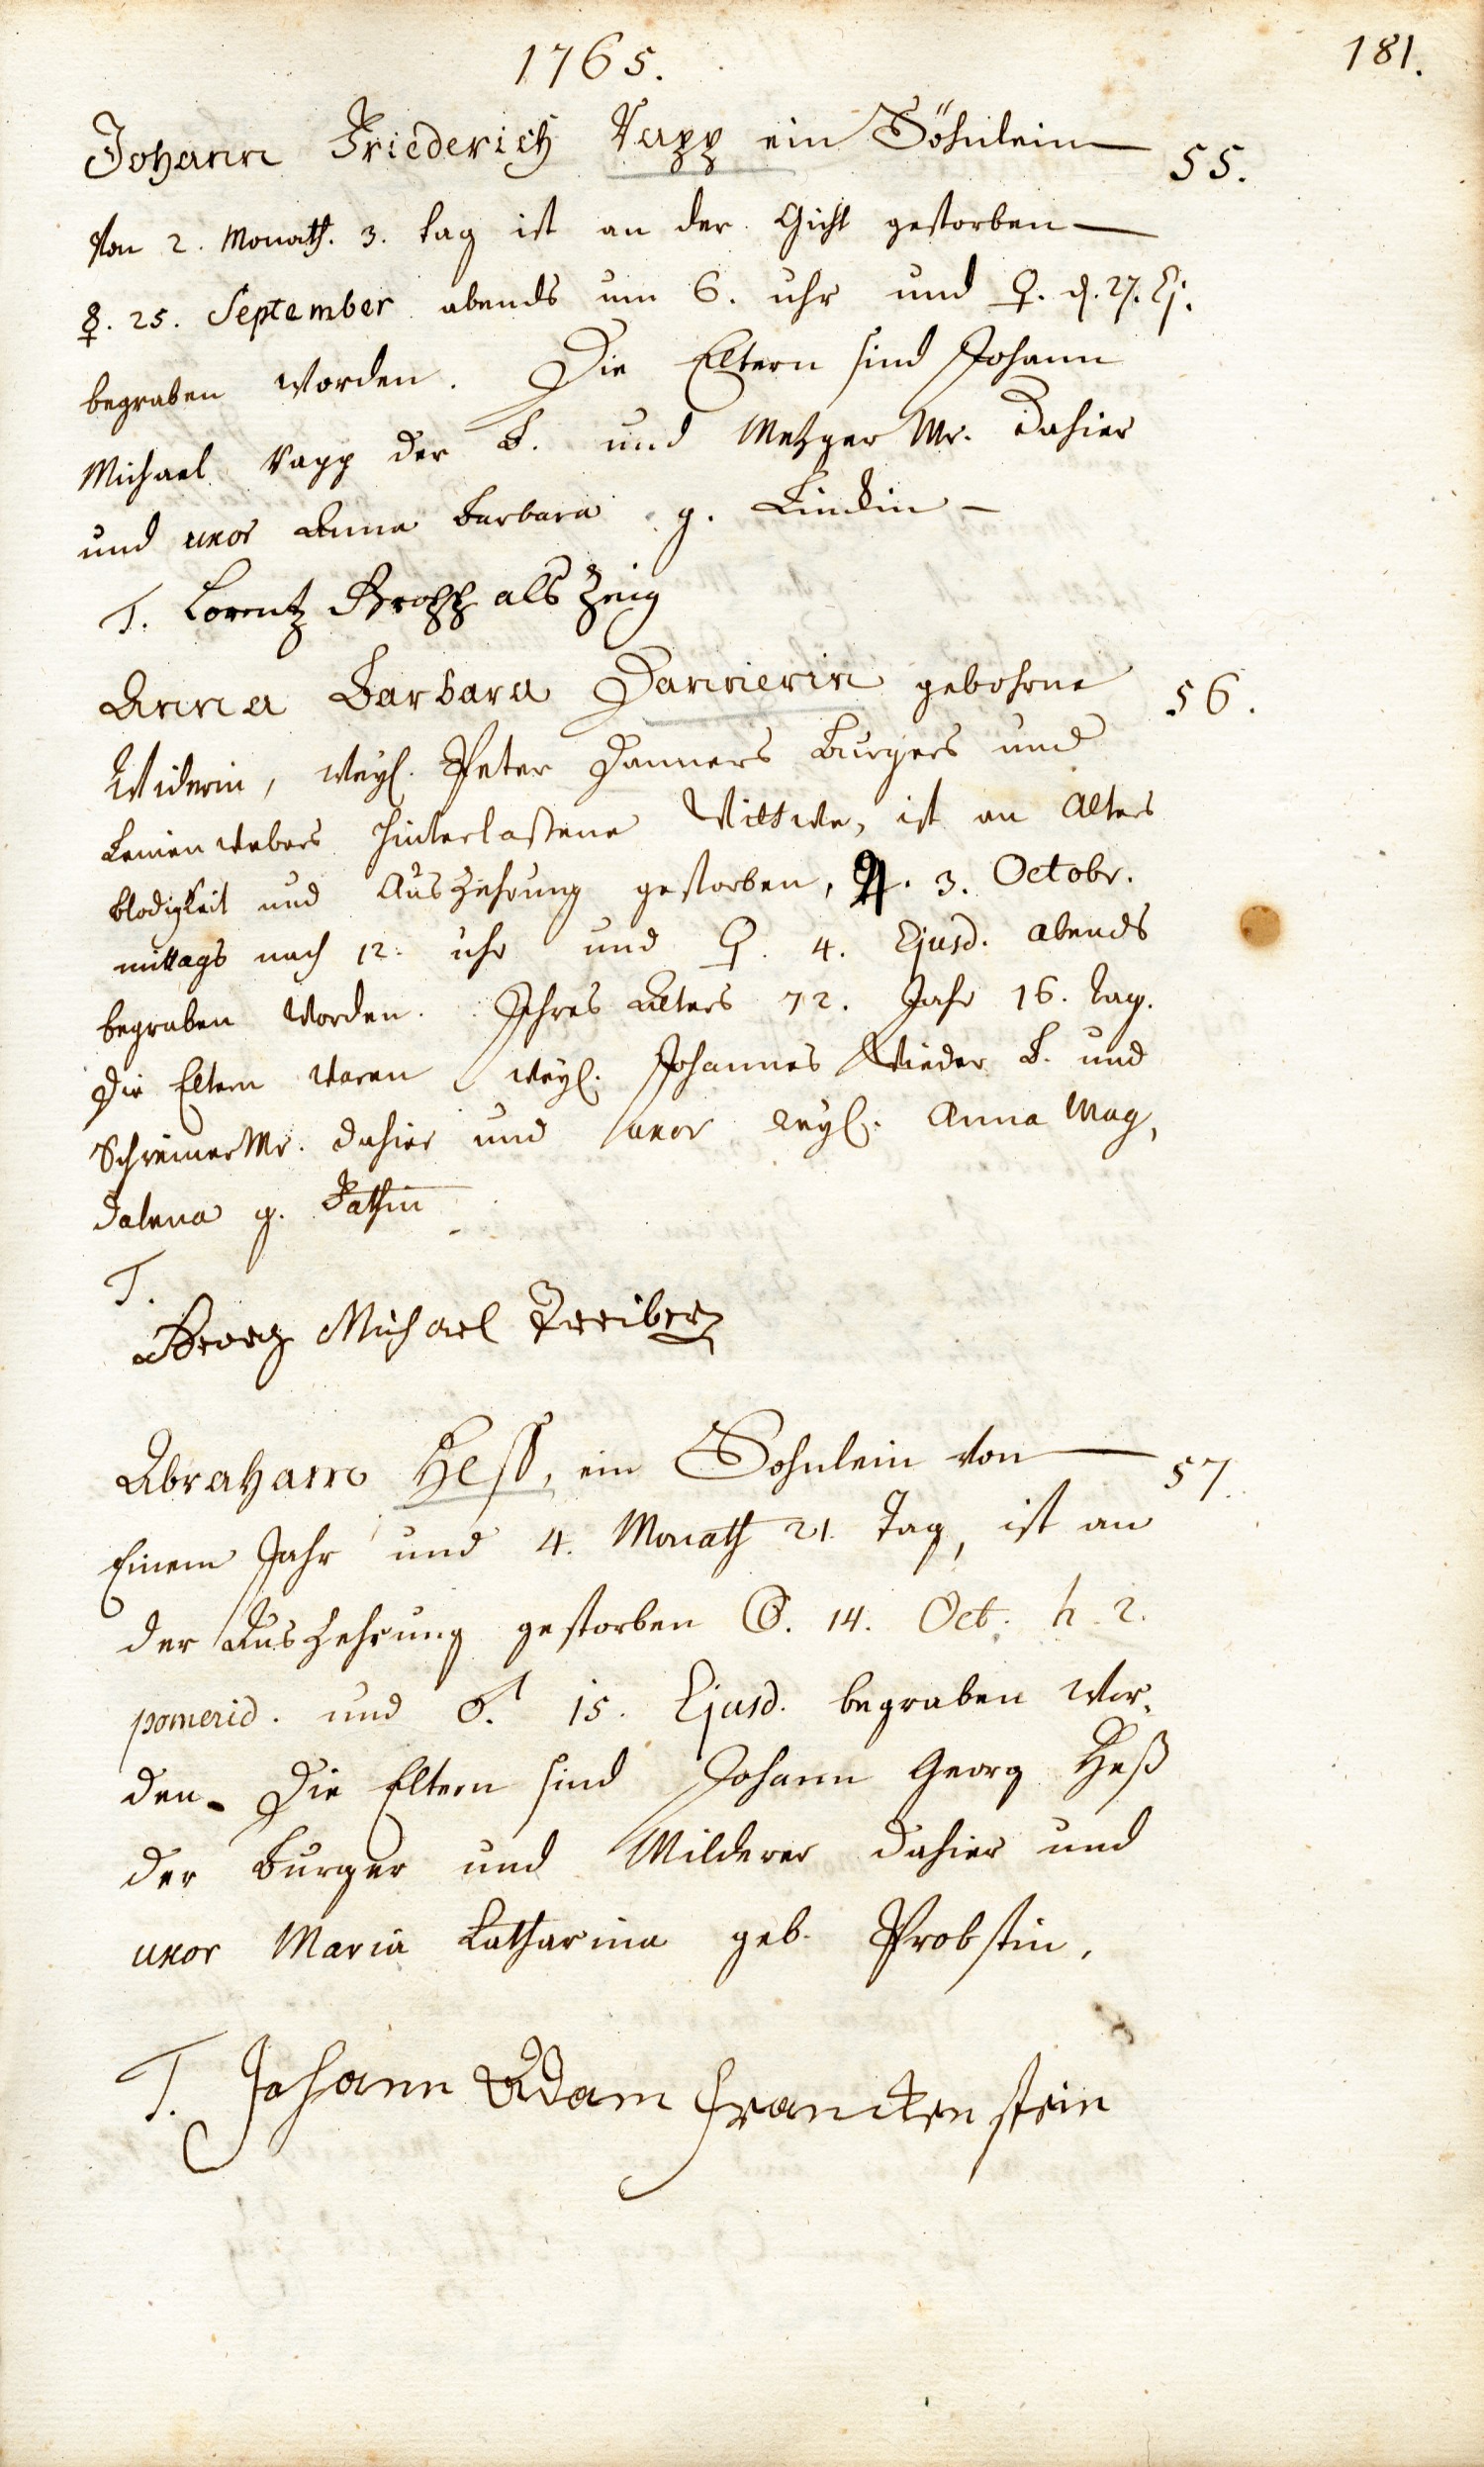 1765.
181.
Johann Friederich Vapp ein Söhnlein
55.
von 2. Monath. 3. tag ist an der Gicht gestorben
☿. 25. September abends um 6. uhr und ♀. d. 27. Ej.
begraben worden. Die Eltern sind Johann
Michael Vapp der B. und Metzger Mr. dahier
und uxor Anna Barbara g. Lindin
T. Lorentz als Zeig
Anna Barbara Dannerin gebohrne
56.
Widerin, weyl. Peter Danners Burgers und
Leinenwebers hinterlaßene Wittwe, ist an Alters
blodigkeit und Auszehrung gestorben, ♃. 3. Octobr.
mittags nach 12. uhr und ♀. 4. Ejusd. abends
begraben worden. Ihres Alters 72. Jahr 16. tag.
Die Eltern waren weyl. Johannes Wieder B. und
Schreiner Mr. dahier und uxor weyl. Anna Mag,
dalena g.
T.
Georg Michael Treiber
Abraham Hess, ein Sohnlein von
57.
Einem Jahr und 4. Monath 21. Tag, ist an
der Auszehrung gestorben ☽. 14. Oct. h. 2.
pomerid. und ♂. 15. Ejusd. begraben wor,
den. Die Eltern sind Johann Georg Heß
der Burger und Milderer dahier und
uxor Maria Catharina geb. Probstin.
T. Johann Adam Franckenstein